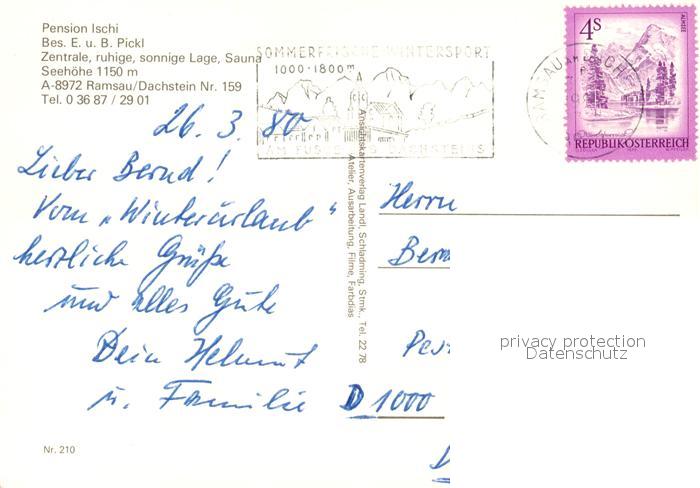 Pension Ischi
Bes. E. u. B. Pickl
Zentrale, ruhige, sonnige Lage, Sauna
Seehöhe 1150 m
A-8972 Ramsau/Dachstein Nr. 159
Tel. 0 36 87 / 29 01
SOMMERFRISCHE WINTERSPORT
1000-1800m
AM FUSSE DES DACHSTEINS
RAMSAU AM
4S
ALMSEE
REPUBLIK ÖSTERREICH
26. 3. 80
Lieber Bernd!
Vom "Winterurlaub"
herzliche Grüße
und alles Gute
Dein Helmut
u. Familie
Ansichtskartenverlag Landl, Schladming, Stmk., Tel. 22 78
Atelier, Ausarbeitung, Filme, Farbdias
Herrn
Bern
D 1000
privacy protection
Datenschutz
Nr. 210